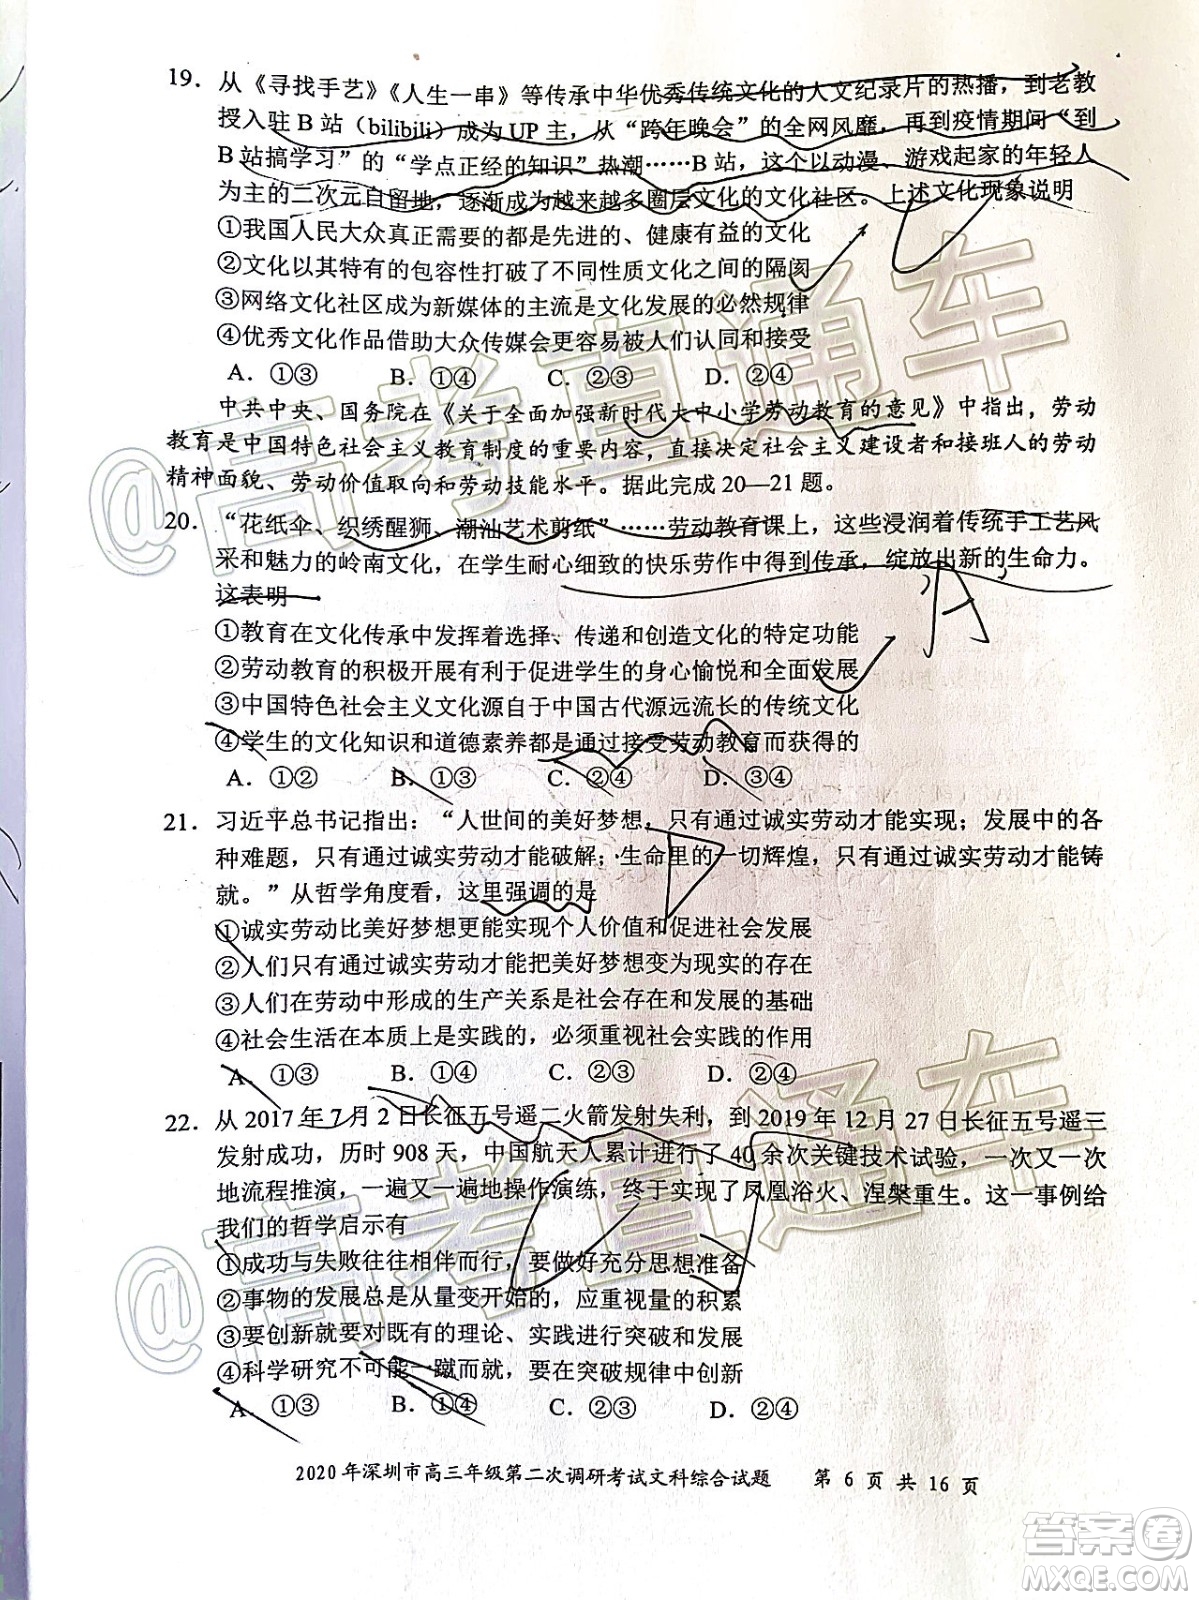 19．从《寻找手艺》《人生一串》等传承中华优秀传统文化的人文纪录片的热播，到老教
授入驻 B 站（bilibili）成为 UP 主，从“跨年晚会”的全网风靡，再到疫情期间“到
B 站搞学习”的“学点正经的知识”热潮……B 站，这个以动漫、游戏起家的年轻人
为主的二次元自留地，逐渐成为越来越多圈层文化的文化社区。上述文化现象说明
①我国人民大众真正需要的都是先进的、健康有益的文化
②文化以其特有的包容性打破了不同性质文化之间的隔阂
③网络文化社区成为新媒体的主流是文化发展的必然规律
④优秀文化作品借助大众传媒会更容易被人们认同和接受
A．①③ B．①④ C．②③ D．②④
中共中央、国务院在《关于全面加强新时代大中小学劳动教育的意见》中指出，劳动
教育是中国特色社会主义教育制度的重要内容，直接决定社会主义建设者和接班人的劳动
精神面貌、劳动价值取向和劳动技能水平。据此完成 20—21 题。
20．“花纸伞、织绣醒狮、潮汕艺术剪纸”……劳动教育课上，这些浸润着传统手工艺风
采和魅力的岭南文化，在学生耐心细致的快乐劳作中得到传承，绽放出新的生命力。
这表明
①教育在文化传承中发挥着选择、传递和创造文化的特定功能
②劳动教育的积极开展有利于促进学生的身心愉悦和全面发展
③中国特色社会主义文化源自于中国古代源远流长的传统文化
④学生的文化知识和道德素养都是通过接受劳动教育而获得的
A．①② B．①③ C．②④ D．③④
21．习近平总书记指出：“人世间的美好梦想，只有通过诚实劳动才能实现；发展中的各
种难题，只有通过诚实劳动才能破解；生命里的一切辉煌，只有通过诚实劳动才能铸
就。”从哲学角度看，这里强调的是
①诚实劳动比美好梦想更能实现个人价值和促进社会发展
②人们只有通过诚实劳动才能把美好梦想变为现实的存在
③人们在劳动中形成的生产关系是社会存在和发展的基础
④社会生活在本质上是实践的，必须重视社会实践的作用
A．①③ B．①④ C．②③ D．②④
22．从 2017 年 7 月 2 日长征五号遥二火箭发射失利，到 2019 年 12 月 27 日长征五号遥三
发射成功，历时 908 天，中国航天人累计进行了 40 余次关键技术试验，一次又一次
地流程推演，一遍又一遍地操作演练，终于实现了凤凰浴火、涅槃重生。这一事例给
我们的哲学启示有
①成功与失败往往相伴而行，要做好充分思想准备
②事物的发展总是从量变开始的，应重视量的积累
③要创新就要对既有的理论、实践进行突破和发展
④科学研究不可能一蹴而就，要在突破规律中创新
A．①③ B．①④ C．②③ D．②④
2020 年深圳市高三年级第二次调研考试文科综合试题 第 6 页 共 16 页
@高考直通车
@高考直通车
答案圈
MXQE.COM